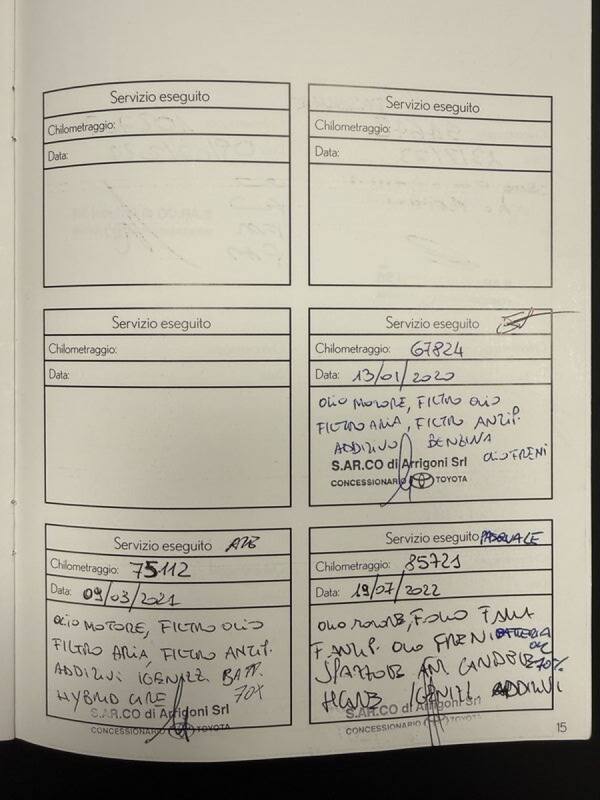 Servizio eseguito
Chilometraggio:
Data:
Servizio eseguito
Chilometraggio:
Data:
Servizio eseguito
Chilometraggio:
Data:
Servizio eseguito
Chilometraggio: 67824
Data: 13/01/2020
OLIO MOTORE, FILTRO OLIO
FILTRO ARIA, FILTRO ANTIP.
ADDITIVO BENZINA
OLIO FRENI
S.AR.CO di Arrigoni Srl
CONCESSIONARIO TOYOTA
Servizio eseguito
Chilometraggio: 75112
Data: 09/03/2021
OLIO MOTORE, FILTRO OLIO
FILTRO ARIA, FILTRO ANTIP.
ADDITIVI IGENIZZ. BATT.
HYBRID CARE 70%
S.AR.CO di Arrigoni Srl
CONCESSIONARIO TOYOTA
Servizio eseguito PASQUALE
Chilometraggio: 85721
Data: 19/07/2022
OLIO MOTORE, F.OLIO F.ARIA
F.ANTIP. OLIO FRENI BATTERIA
SPAZZOLE ANT. CANDELE 70%
ADDITIVI
S.AR.CO di Arrigoni Srl
CONCESSIONARIO TOYOTA
15